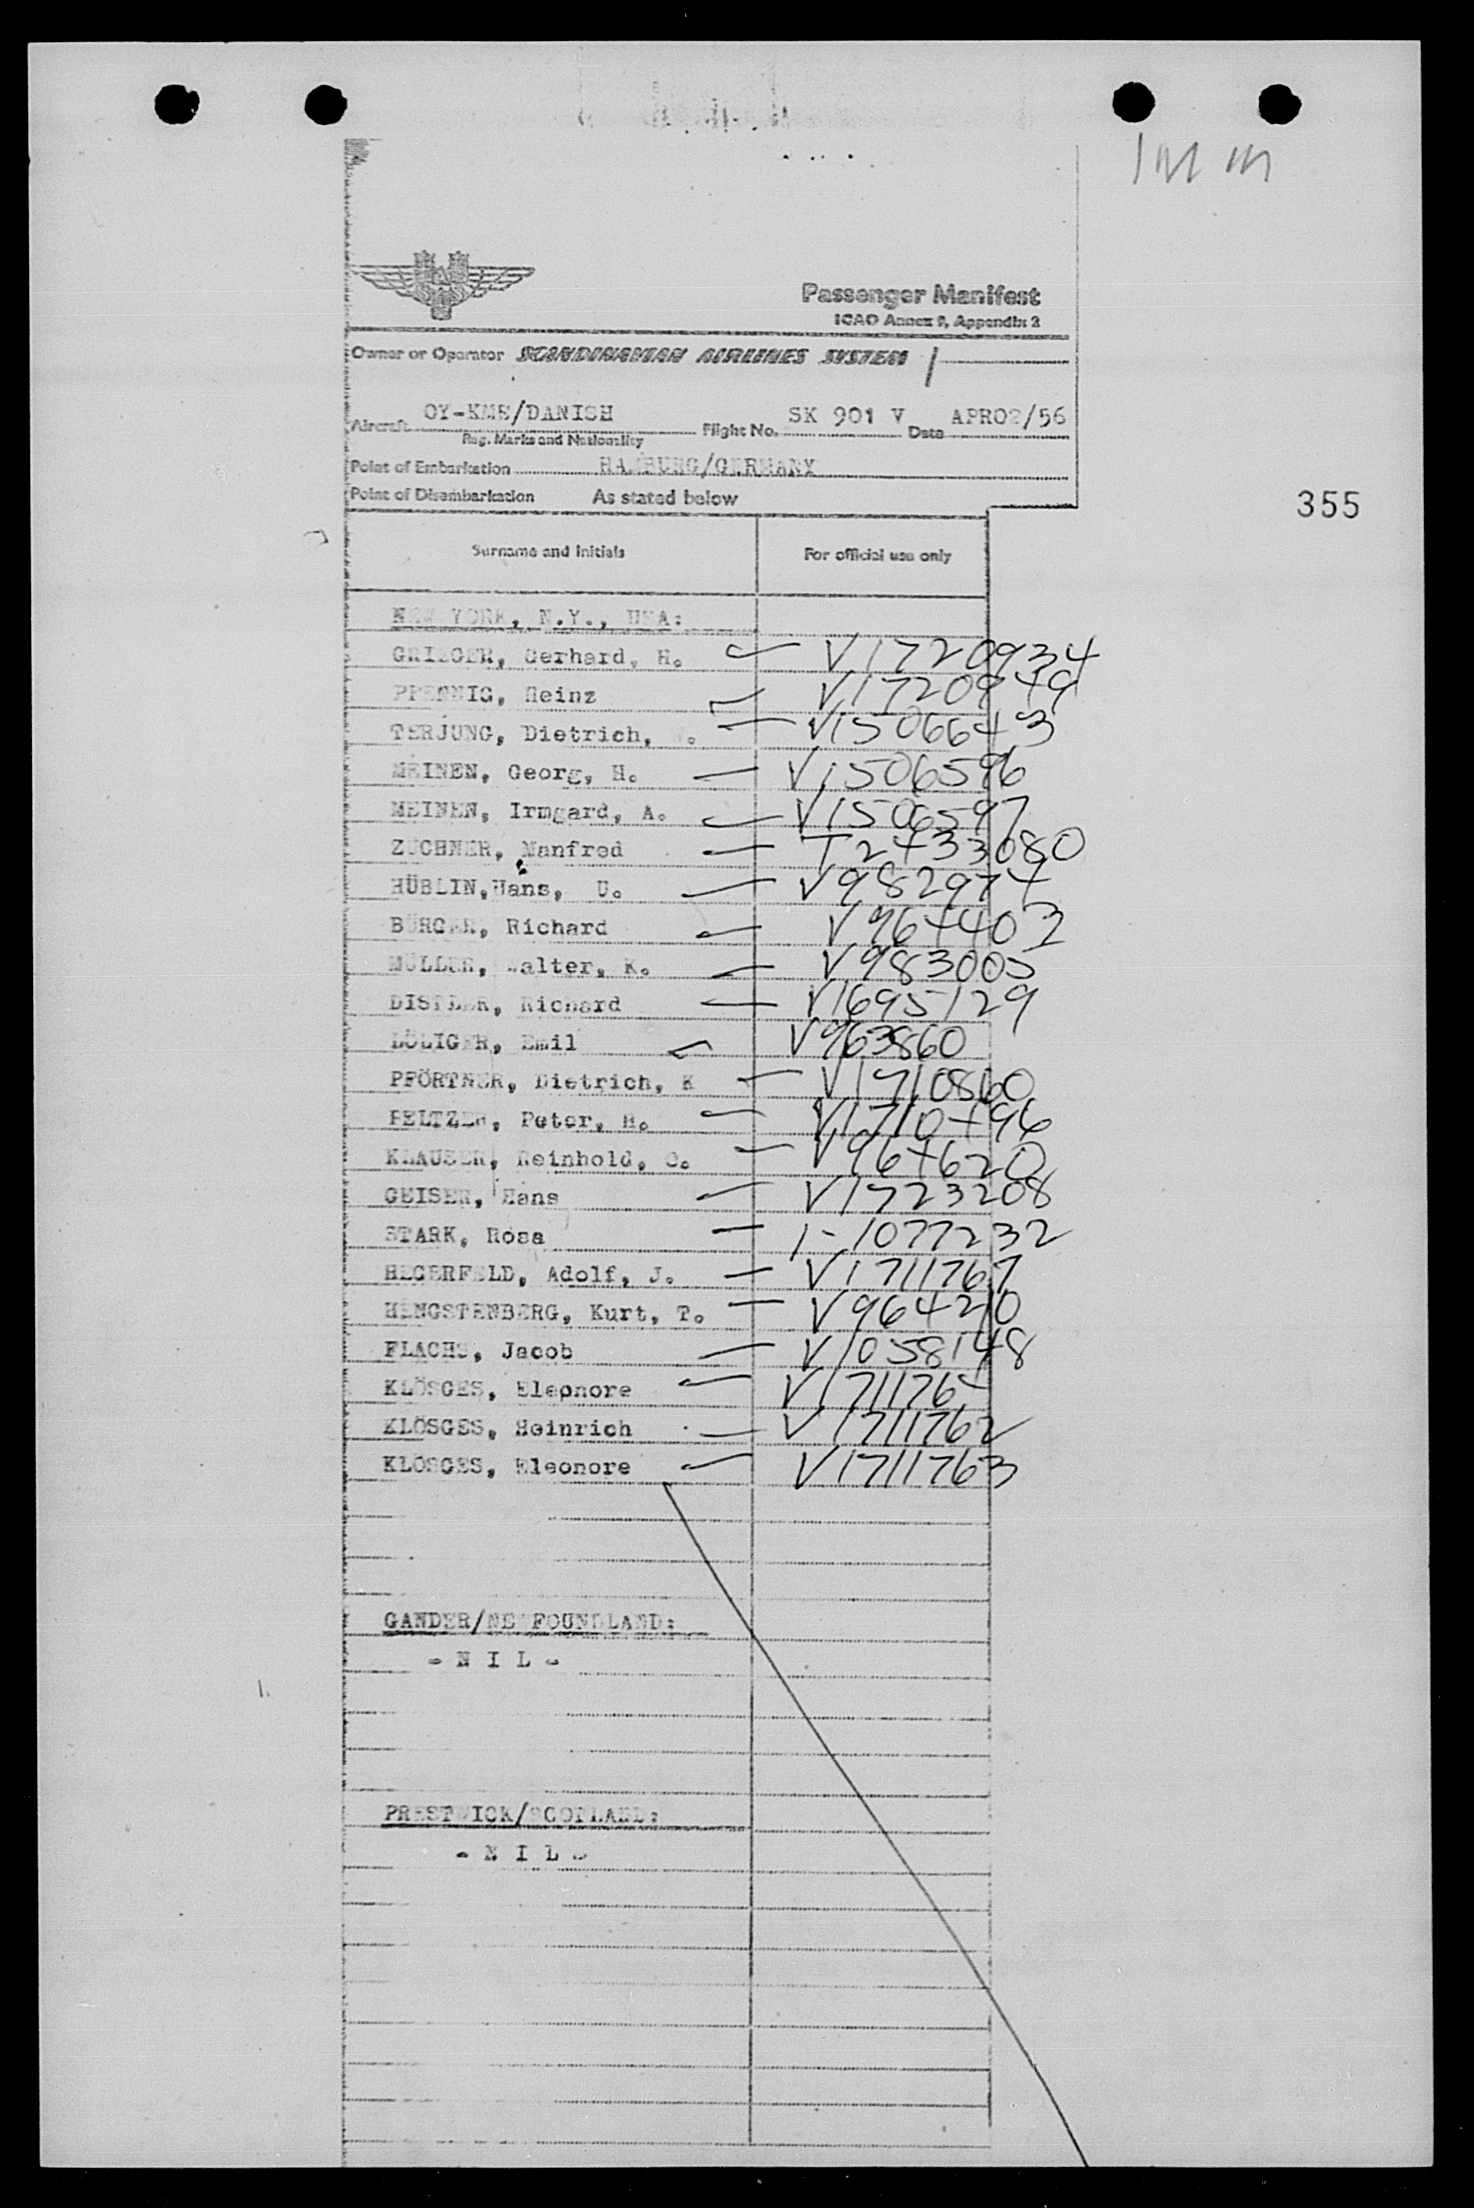 Passenger Manifest
ICAO Annex 9, Appendix 2
Owner or Operator SCANDINAVIAN AIRLINES SYSTEM
Aircraft OY-KME/DANISH Flight No. SK 901 V Date APR02/56
Reg. Marks and Nationality
Point of Embarkation HAMBURG/GERMANY
Point of Disembarkation As stated below
355
Surname and initials For official use only
NEW YORK, N.Y., USA:
GRIEGER, Gerhard, H. V1720934
PFENNIG, Heinz V1720949
TERJUNG, Dietrich, V1506643
MEINEN, Georg, H. V1506596
MEINEN, Irmgard, A. V1506597
ZÜCHNER, Manfred T2433080
HÜBLIN, Hans, U. V982974
BÜRGER, Richard V964403
MÜLLER, Walter, K. V983005
DISTLER, Richard V1695129
LÜLIGER, Emil V963860
PFÖRTNER, Dietrich, K V1710860
PELTZER, Peter, H. V1710496
KLAUSER, Reinhold, O. V964620
GEISEN, Hans V1723208
STARK, Rosa 1-1077232
HEGERFELD, Adolf, J. V1711767
HENGSTENBERG, Kurt, T. V964210
FLACHS, Jacob V1058148
KLÖSGES, Eleonore V1711764
KLÖSGES, Heinrich V1711762
KLÖSGES, Eleonore V1711763
GANDER/NEWFOUNDLAND:
- N I L -
PRESTWICK/SCOTLAND:
- N I L -